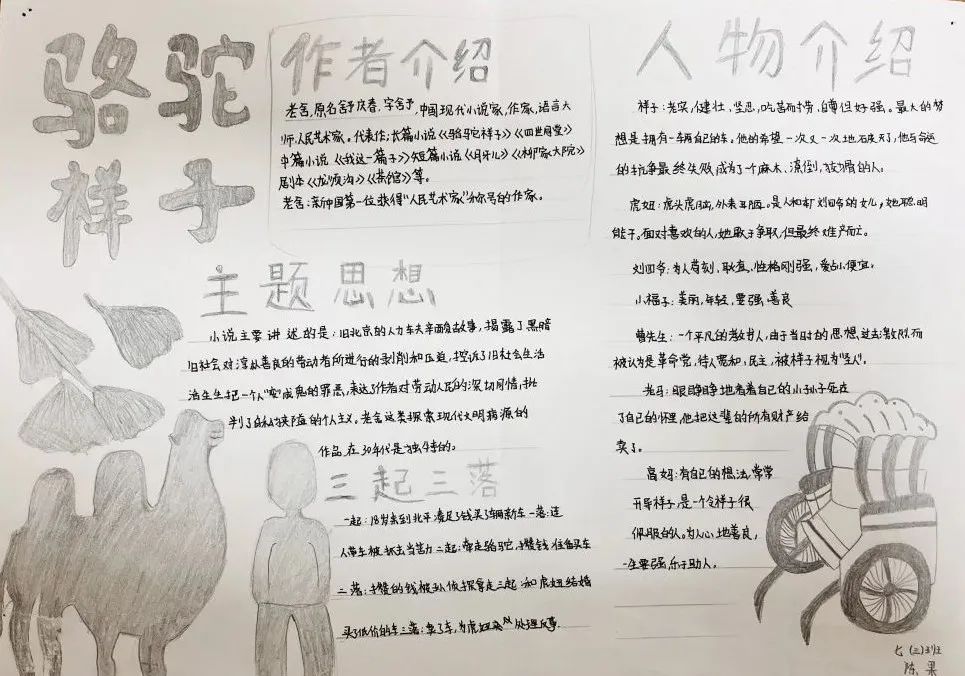 骆驼
祥子
作者介绍
老舍,原名舒庆春,字舍予,中国现代小说家,作家,语言大
师,人民艺术家。代表作:长篇小说《骆驼祥子》《四世同堂》
中篇小说《我这一辈子》短篇小说《月牙儿》《柳家大院》
剧本《龙须沟》《茶馆》等。
老舍:新中国第一位获得"人民艺术家"称号的作家。
主题思想
小说主要讲述的是:旧北京的人力车夫辛酸故事,揭露了黑暗
旧社会对淳朴善良的劳动者所进行的剥削和压迫,控诉了旧社会生活
活生生把一个人"变"成鬼的罪恶,表达了作者对劳动人民的深切同情,批
判了自私狭隘的个人主义。老舍这类探索现代文明病源的
作品在30年代是独特的。
三起三落
一起:18岁来到北平凑足了钱买了辆新车一落:连
人带车被抓去当苦力二起:牵走骆驼,攒钱准备买车
二落:攒的钱被孙侦探拿走三起:和虎妞结婚
买了低价的车三落:卖了车,为虎妞处理后事.
人物介绍
祥子:老实,健壮,坚忍,吃苦而耐劳,自尊但好强。最大的梦
想是拥有一辆自己的车。他的希望一次又一次地破灭了,他与命运
的抗争最终失败,成为了个麻木、潦倒,狡猾的人。
虎妞:虎头虎脑,外表丑陋。是人和车厂刘四爷的女儿,她聪明
能干。面对喜欢的人,她敢于争取,但最终难产而亡。
刘四爷:为人苛刻、耿直,性格刚强,爱占小便宜。
小福子:美丽,年轻,要强,善良
曹先生:一个平凡的教书人,由于当时的思想过去激烈,而
被认为是革命党,待人宽和,民主,被祥子视为"圣人"。
老马:眼睁睁地看着自己的小孙子死在
了自己的怀里,他把这辈的所有财产给
卖了。
高妈:有自己的想法,常常
开导祥子,是一个令祥子很
佩服的人。为人心地善良,
一生要强,乐于助人。
七(三)班
陈果